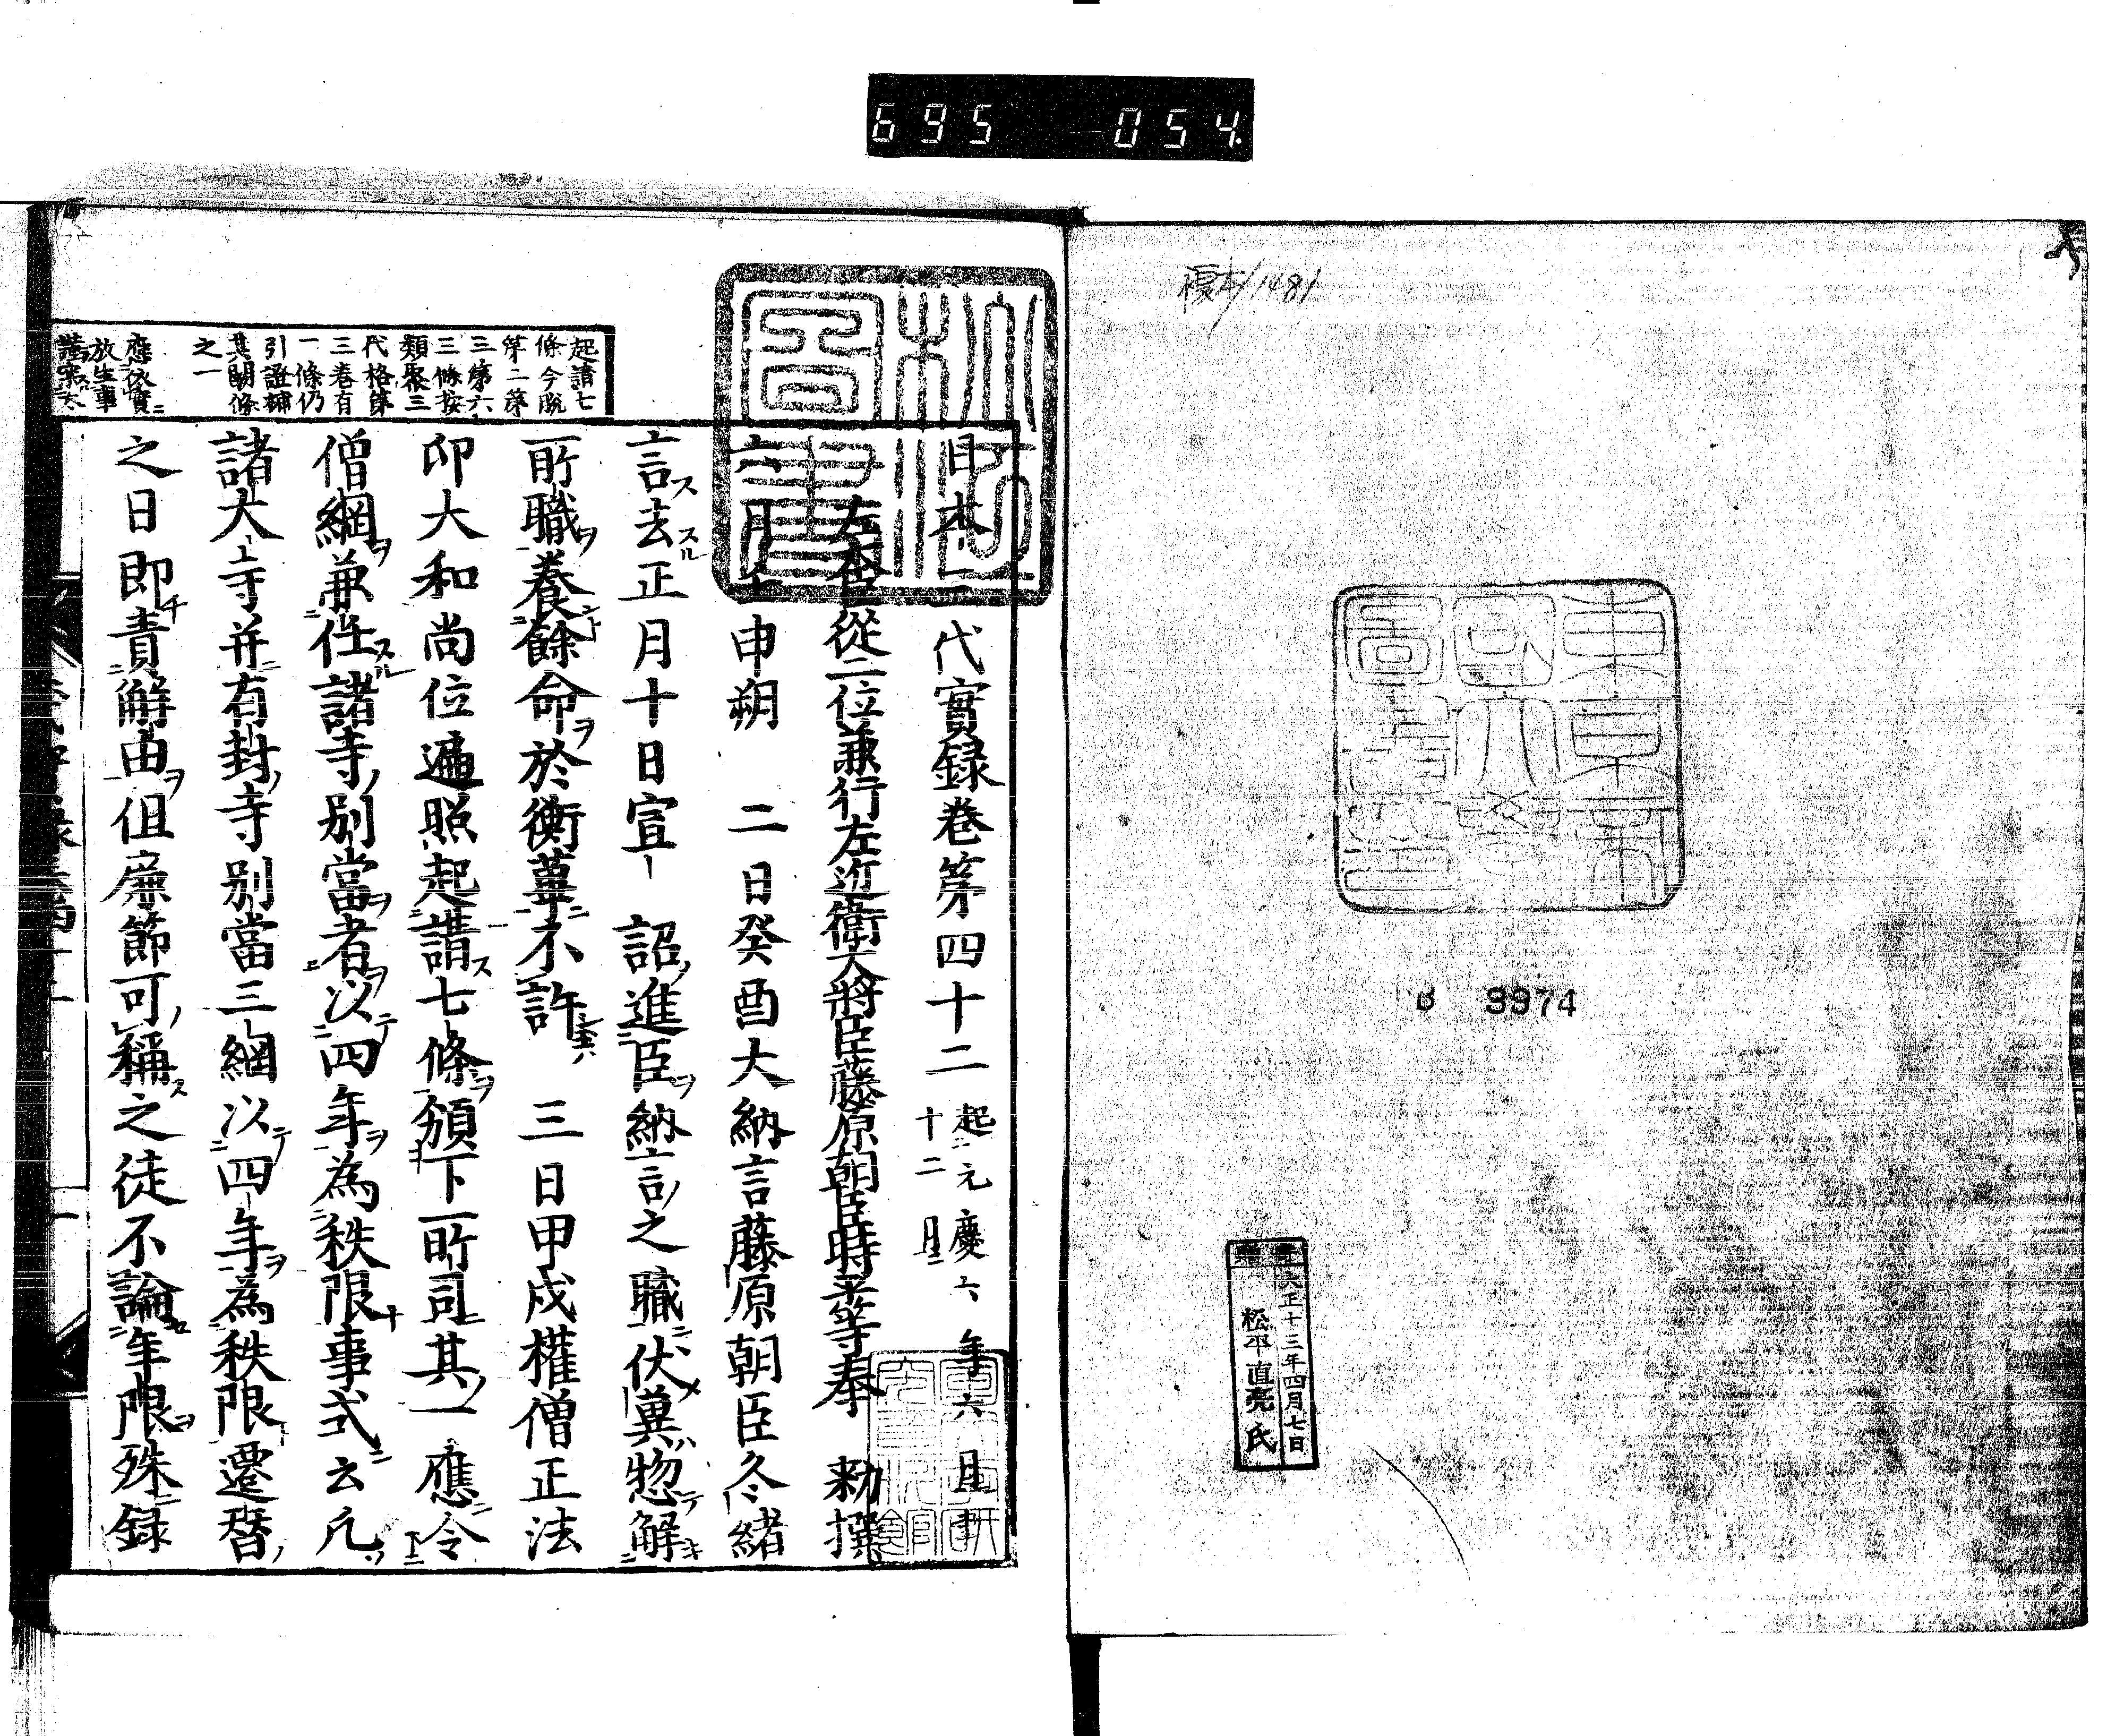 695 054
複本/1481
東京帝國大學圖書印
B 3974
寄贈
大正十三年四月七日
松平直亮氏
日本三代實録巻第四十二 起元慶六年六月
十二月
左大臣從二位兼行左近衛大將臣藤原朝臣時平等奉 勅撰
六月壬申朔 二日癸酉大納言藤原朝臣冬緒
言去正月十日宣 詔進臣納言之職伏冀惣解
所職養餘命於衡蓽不許 三日甲戌權僧正法
印大和尚位遍照起請七條頒下所司其一應令
僧綱兼任諸寺別當者以四年為秩限事式云凡
諸大寺并有封寺別當三綱以四年為秩限遷替
之日即責解由但廉節可稱之徒不論年限殊録
起請七
條今脱
第二第
三第六
三條按
類聚三
代格第
三巻有
一條仍
引證補
其闕條
之一
應依實
放生事